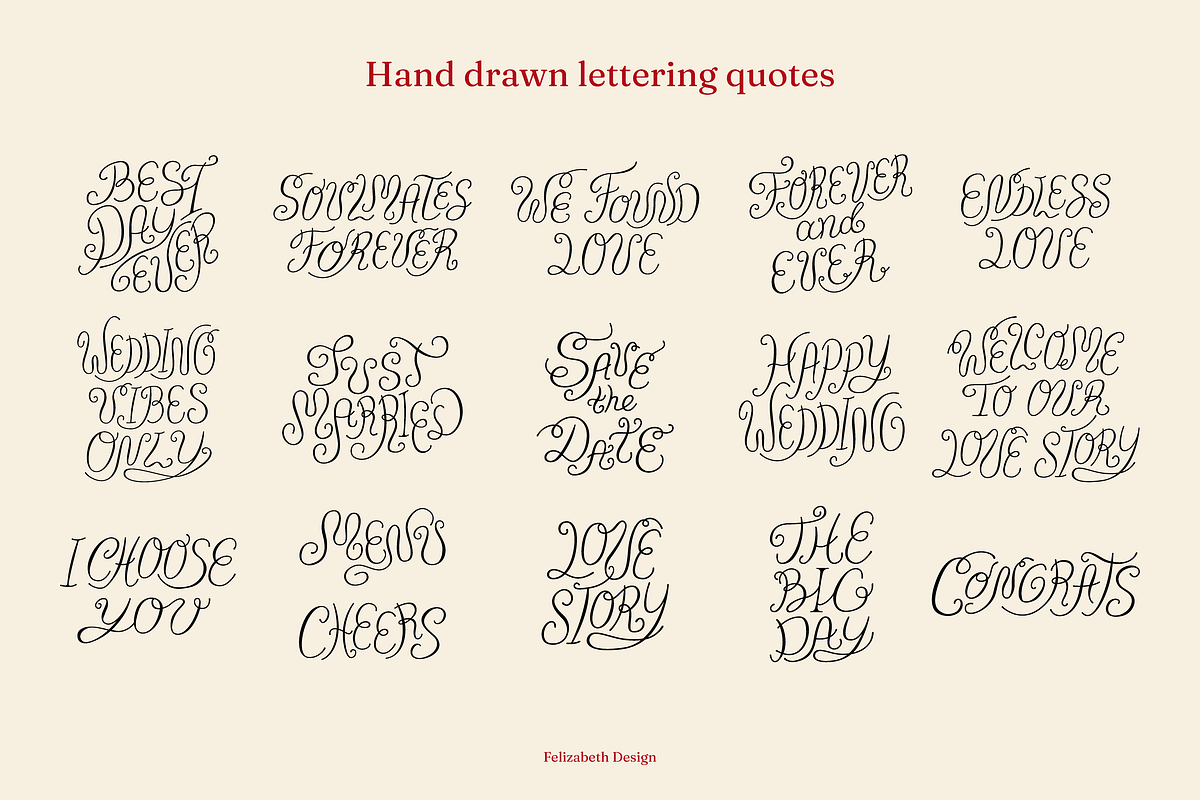 Hand drawn lettering quotes
BEST
DAY
EVER
SOULMATES
FOREVER
WE FOUND
LOVE
FOREVER
and
EVER
ENDLESS
LOVE
WEDDING
VIBES
ONLY
JUST
MARRIED
SAVE
the
DATE
HAPPY
WEDDING
WELCOME
TO OUR
LOVE STORY
I CHOOSE
YOU
MENU
CHEERS
LOVE
STORY
THE
BIG
DAY
CONGRATS
Felizabeth Design